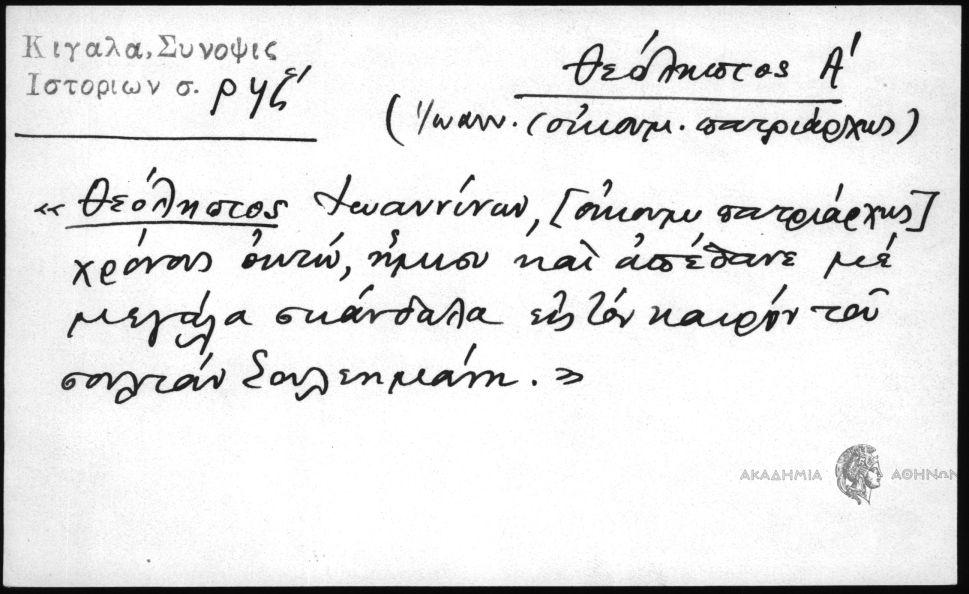 Κιγαλα, Συνοψις
Ιστοριων σ. ρϟζ΄
Θεόληπτος Α΄
(Ιωανν. (οἰκουμ. πατριάρχης)
« Θεόληπτος Ἰωαννίνων, [οἰκουμ πατριάρχης]
χρόνους ὀκτώ, ἥμισυ καὶ ἀπέθανε μὲ
μεγάλα σκάνδαλα εἰς τὸν καιρὸν τοῦ
σουλτὰν Σουλεημάνη. »
ΑΚΑΔΗΜΙΑ ΑΘΗΝΩΝ